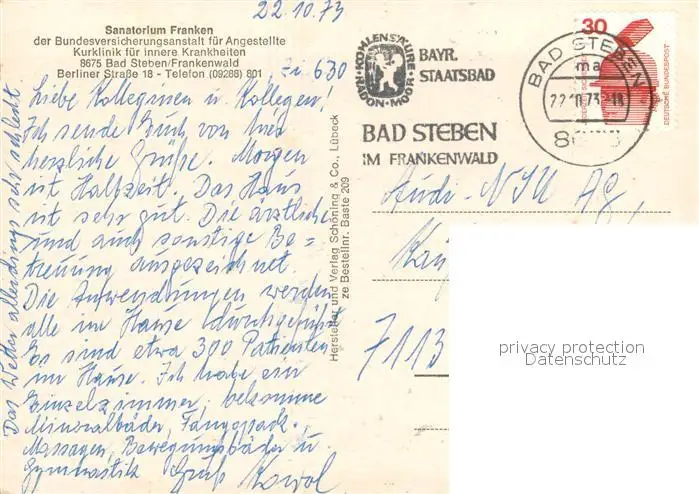 22.10.73
Sanatorium Franken
der Bundesversicherungsanstalt für Angestellte
Kurklinik für innere Krankheiten
8675 Bad Steben/Frankenwald
Berliner Straße 18 - Telefon (09288) 801
Zi. 630
Liebe Kolleginnen u. Kollegen!
Ich sende Euch von hier
herzliche Grüße. Morgen
ist Halbzeit. Das Haus
ist sehr gut. Die ärztliche
und auch sonstige Be=
treuung ausgezeichnet.
Die Anwendungen werden
alle im Hause durchgeführt
Es sind etwa 300 Patienten
im Hause. Ich habe ein
Einzelzimmer, bekomme
Mineralbäder, Fangopack.,
Massagen, Bewegungsbäder u.
Gymnastik Gruß
Das Wetter allerdings sehr schlecht
Hersteller und Verlag Schöning & Co., Lübeck
ze Bestellnr. Baste 209
KOHLENSÄURE
RADON-MOOR
BAYR.
STAATSBAD
BAD STEBEN
IM FRANKENWALD
BAD STEBEN
ma
22.10.73-18
30
DEUTSCHE BUNDESPOST
Audi-NSU AG,
7113
privacy protection
Datenschutz